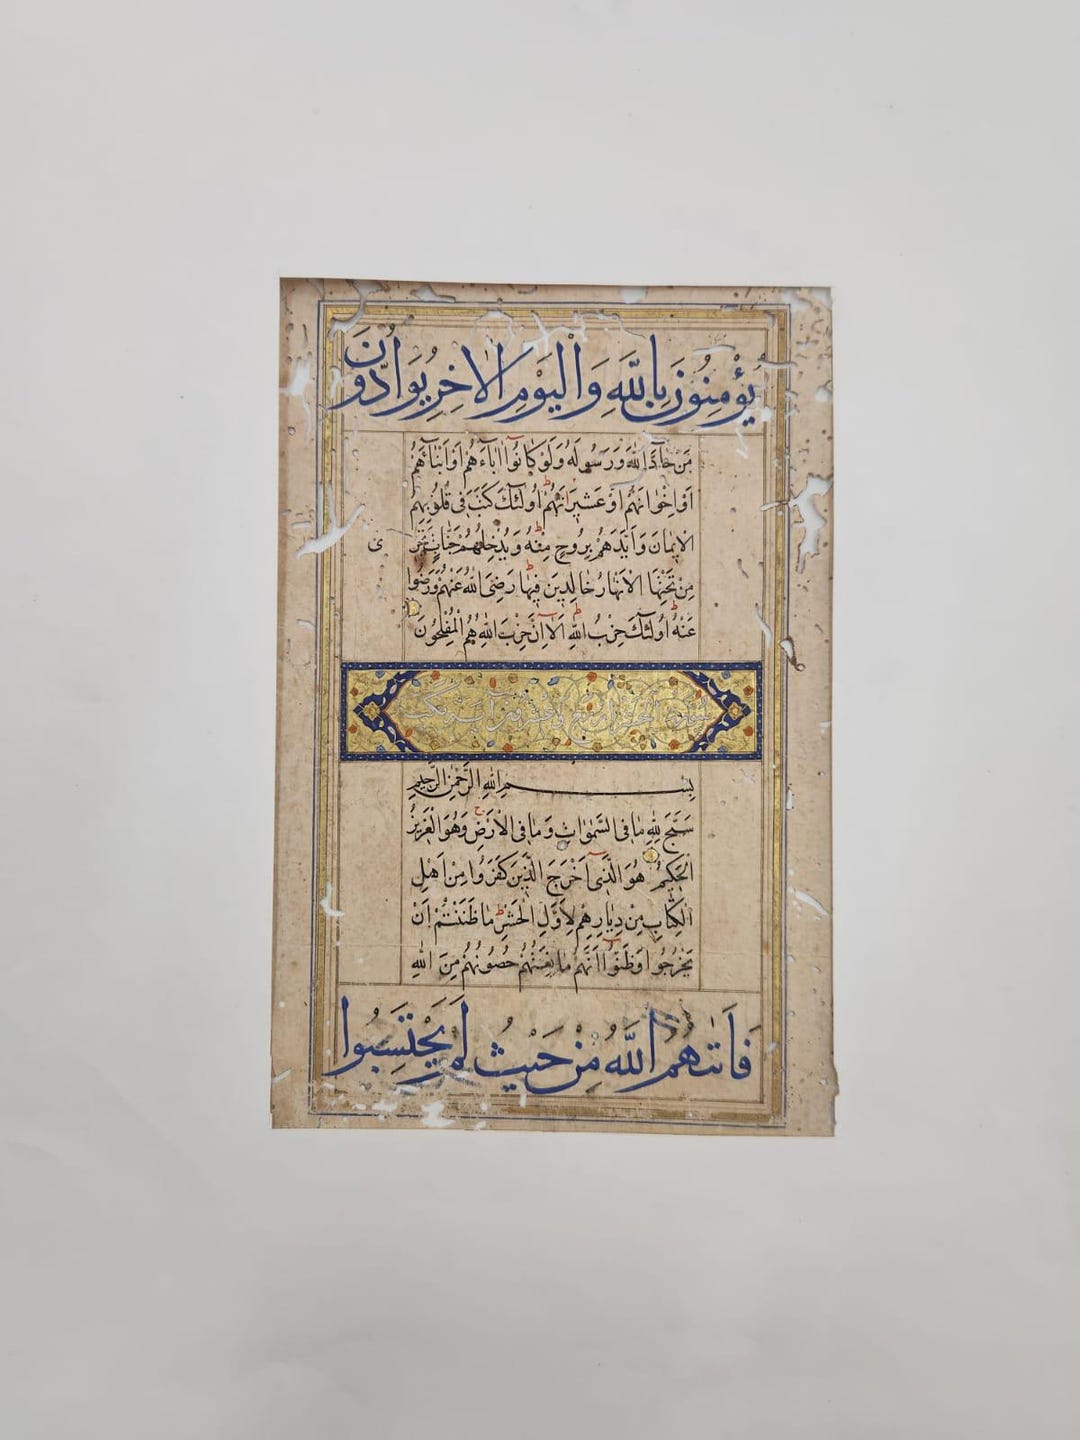 يُؤْمِنُونَ بِاللَّهِ وَالْيَوْمِ الْاٰخِرِ يُوَادُّونَ
مَنْ حَادَّ اللهَ وَرَسُولَهُ وَلَوْ كَانُوا اٰبَاءَهُمْ اَوْ اَبْنَاءَهُمْ
اَوْ اِخْوَانَهُمْ اَوْ عَشِيرَتَهُمْ اُولٰئِكَ كَتَبَ فِى قُلُوبِهِمُ
الْاِيمَانَ وَاَيَّدَهُمْ بِرُوحٍ مِنْهُ وَيُدْخِلُهُمْ جَنَّاتٍ تَجْرِى
مِنْ تَحْتِهَا الْاَنْهَارُ خَالِدِينَ فِيهَا رَضِىَ اللهُ عَنْهُمْ وَرَضُوا
عَنْهُ اُولٰئِكَ حِزْبُ اللهِ اَلَا اِنَّ حِزْبَ اللهِ هُمُ الْمُفْلِحُونَ
سورة الحشر
بِسْمِ اللهِ الرَّحْمٰنِ الرَّحِيمِ
سَبَّحَ لِلّٰهِ مَا فِى السَّمٰوَاتِ وَمَا فِى الْاَرْضِ وَهُوَ الْعَزِيزُ
الْحَكِيمُ هُوَ الَّذِى اَخْرَجَ الَّذِينَ كَفَرُوا مِنْ اَهْلِ
الْكِتَابِ مِنْ دِيَارِهِمْ لِاَوَّلِ الْحَشْرِ مَا ظَنَنْتُمْ اَنْ
يَخْرُجُوا وَظَنُّوا اَنَّهُمْ مَانِعَتُهُمْ حُصُونُهُمْ مِنَ اللهِ
فَاَتٰهُمُ اللَّهُ مِنْ حَيْثُ لَمْ يَحْتَسِبُوا